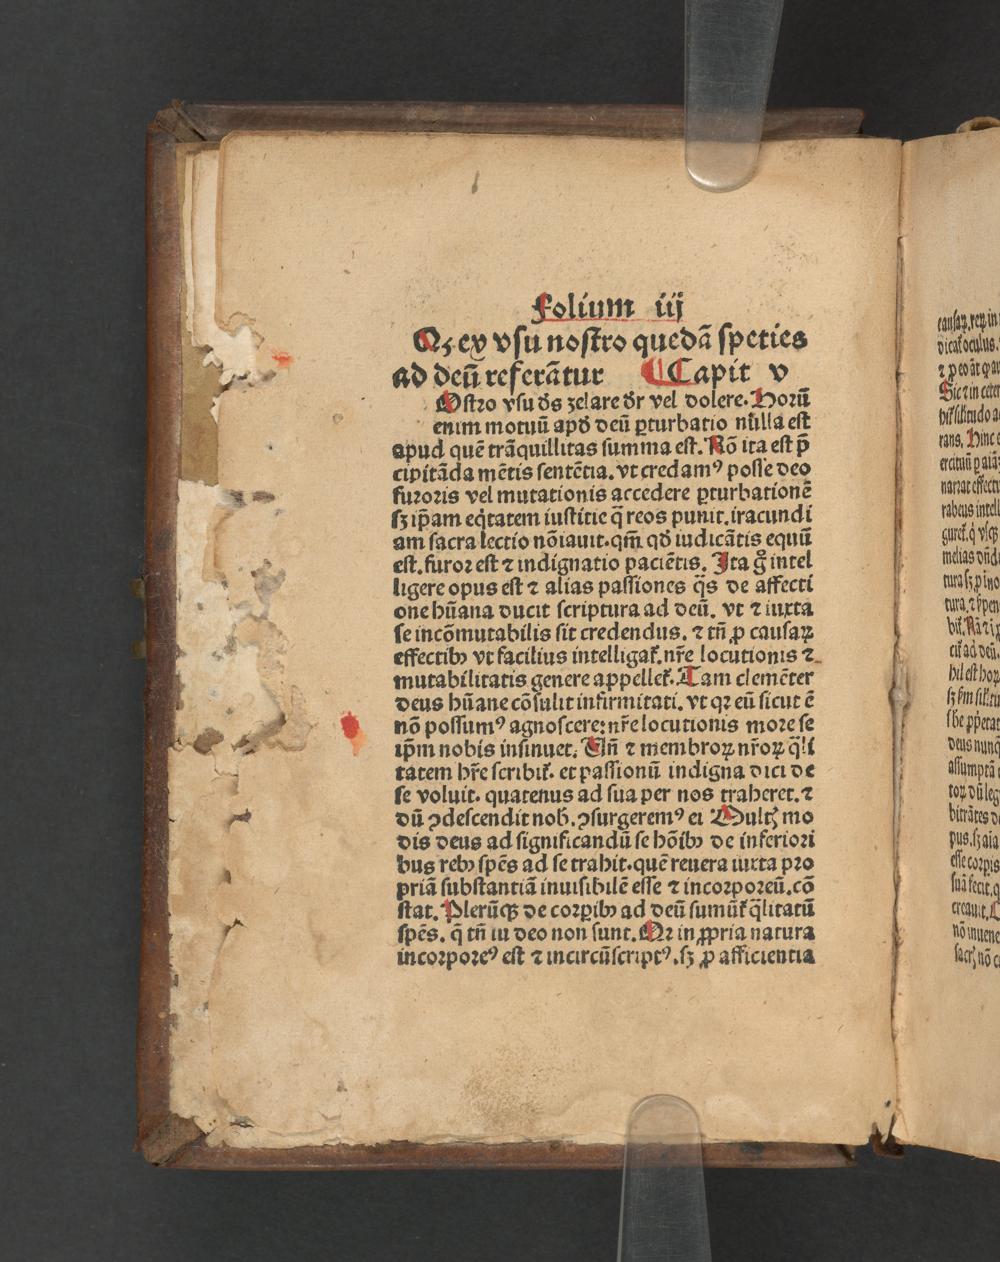 Folium iij
Qꝫ ex vsu nostro quedā speties
ad deū referātur ¶ Capit v
Ostro vsu ds̄ zelare dr̄ vel dolere. Horū
enim motuū apd̄ deū ꝑturbatio nulla est
apud quē trāquillitas summa est. Nō ita est p̄
cipitāda mētis sentētia. vt credamꝰ posse deo
furoris vel mutationis accedere ꝑturbationē
sꝫ ip̄am eq̇tatem iustitie q̄ reos punit. iracundi
am sacra lectio nōiauit. qm̄ qd̄ iudicātis equū
est. furor est ⁊ indignatio paciētis. Ita gͦ intel
ligere opus est ⁊ alias passiones q̄s de affecti
one hūana ducit scriptura ad deū. vt ⁊ iuxta
se incōmutabilis sit credendus. ⁊ tn̄ ꝓ causaꝝ
effectibꝫ vt facilius intelligat᷑. nr̄e locutionis ⁊
mutabilitatis genere appellet᷑. Tam clemēter
deus hūane cōsulit infirmitati. vt qꝛ eū sicut ē
nō possumꝰ agnoscere: nr̄e locutionis more se
ip̄m nobis insinuet. Un̄ ⁊ membroꝝ nr̄oꝝ q̄li
tatem hr̄e scribit᷑. et passionū indigna dici de
se voluit. quatenus ad sua per nos traheret. ⁊
dū ꝯdescendit nob̄. ꝯsurgeremꝰ ei Multꝭ mo
dis deus ad significandū se hōibꝫ de inferiori
bus rebꝫ sp̄es ad se trahit. quē reuera iuxta pro
priā substantiā inuisibilē esse ⁊ incorporeū. cō
stat. Plerūqꝫ de corꝑibꝫ ad deū sumūt᷑ q̄litatū
sp̄es. q̄ tn̄ iu deo non sunt. Qꝛ in ꝓpria natura
incorporeꝰ est ⁊ incircūscriptꝰ. sꝫ ꝓ afficientia